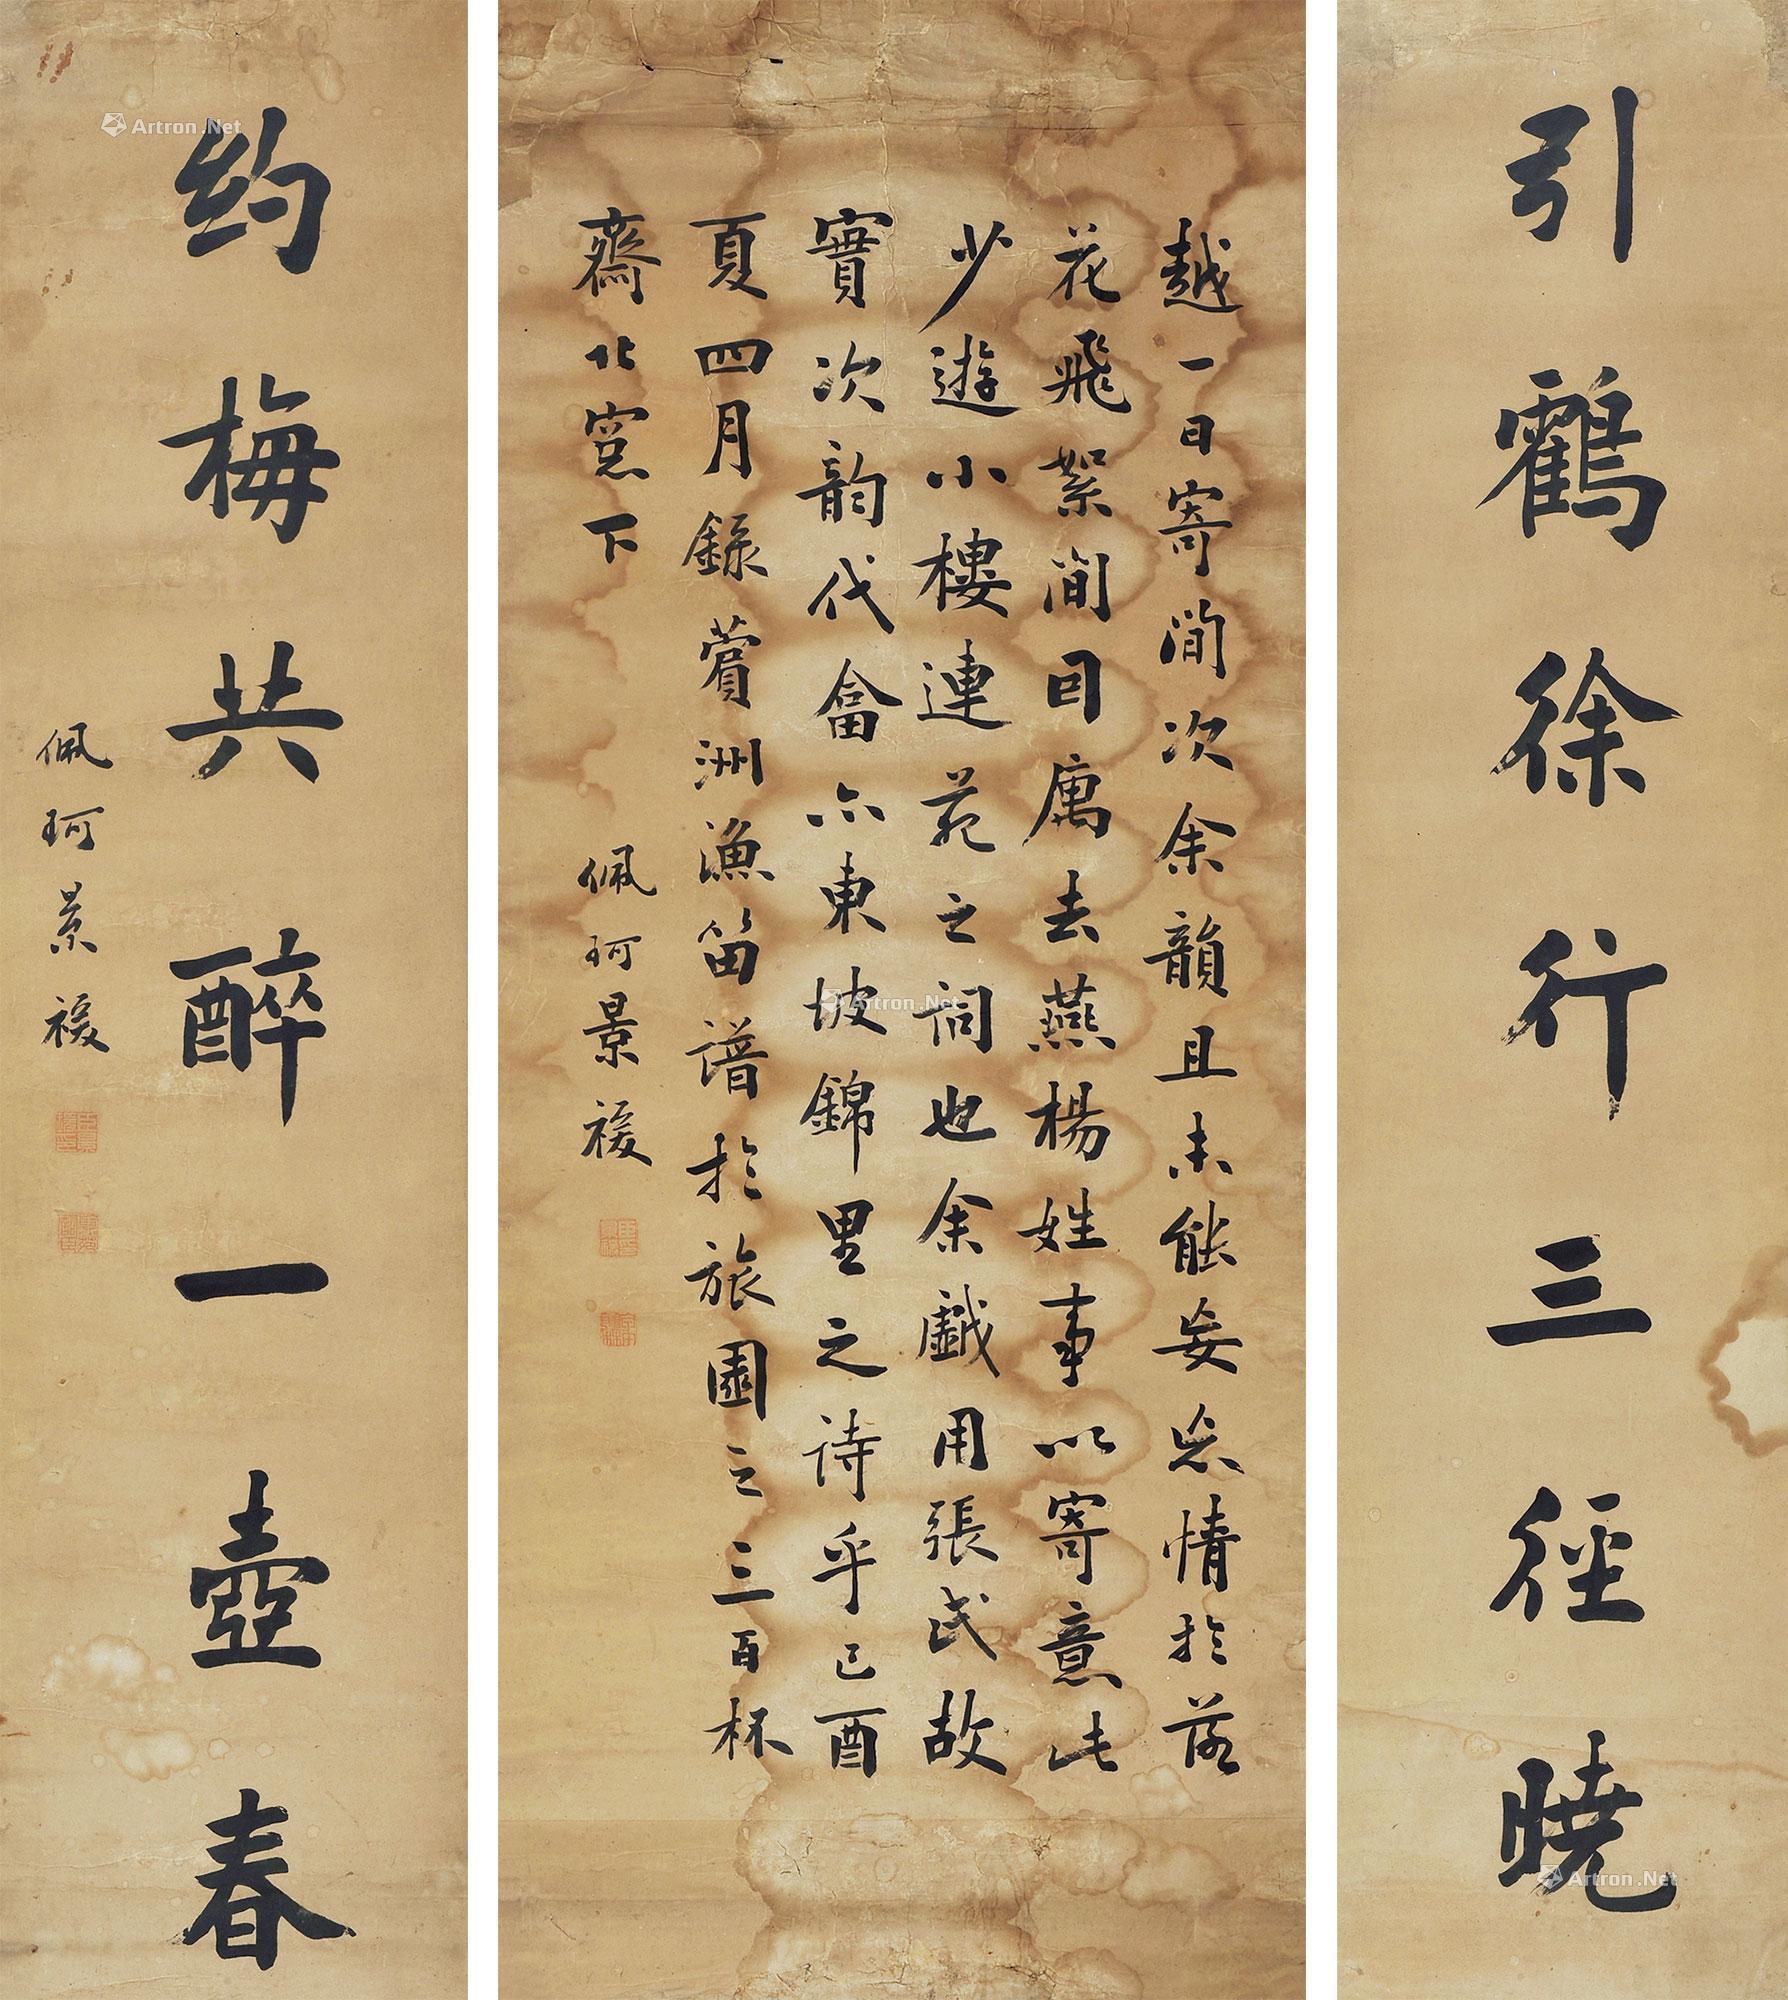 引鶴徐行三徑曉
越一日寄閒次余韻且未能妄忘情於落
花飛絮間因寓去燕楊姓事以寄意此
少遊小樓連苑之詞也余戯用張氏故
實次韵代畣亦東坡錦里之詩乎己酉
夏四月錄薲洲漁笛譜於旅園之三百杯
齋北窓下
佩珂景禐
约梅共醉一壺春
佩珂景禐
Artron.Net
Artron.Net
Artron.Net